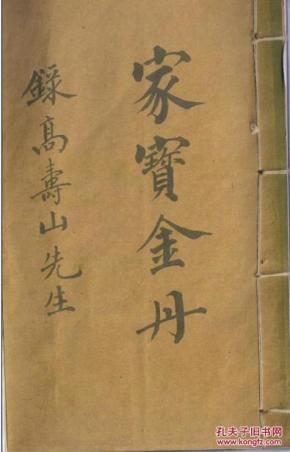 家寶金丹
録高壽山先生
孔夫子旧书网
www.kongfz.com